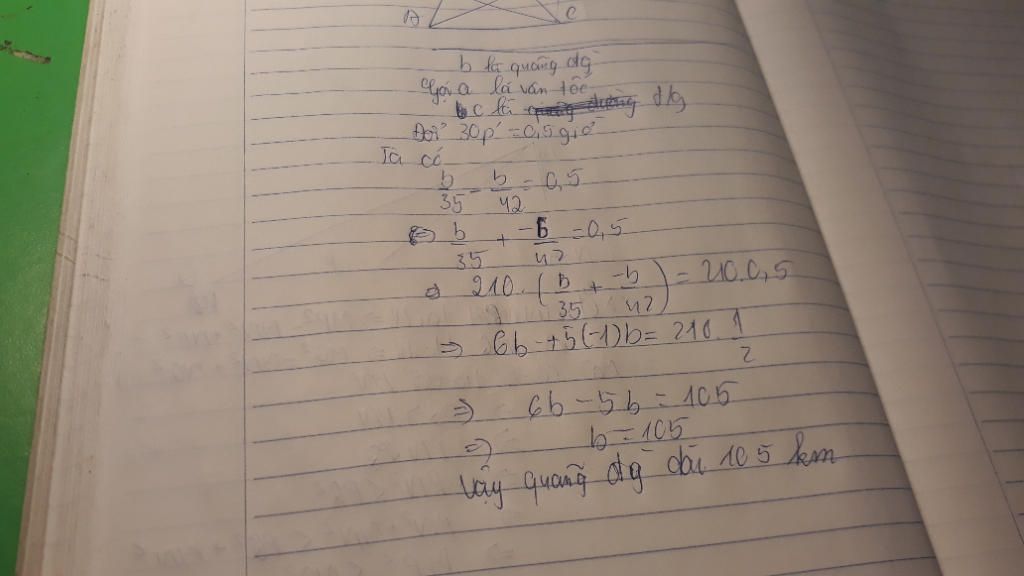 A C
b là quãng đg
Gọi a là vân tôc
c là đg
Đổi 30p' = 0,5 giờ
Ta có
b/35 - b/42 = 0,5
⇔ b/35 + -b/42 = 0,5
⇒ 210. (b/35 + -b/42) = 210.0,5
⇒ 6b +5(-1)b = 210. 1/2
⇒ 6b - 5b = 105
⇒ b = 105
Vậy quãng đg dài 105 km